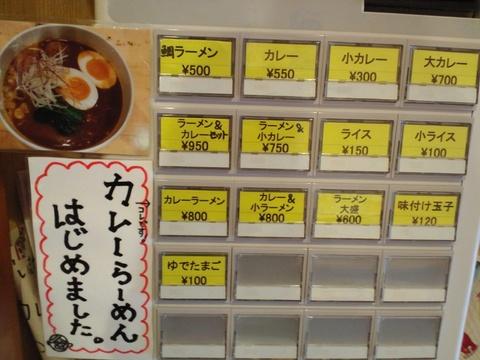 鯛ラーメン
¥500
カレー
¥550
小カレー
¥300
大カレー
¥700
ラーメン&
カレーセット
¥950
ラーメン&
小カレー
¥750
ライス
¥150
小ライス
¥100
カレーラーメン
¥800
カレー&
小ラーメン
¥800
ラーメン
大盛
¥600
味付け玉子
¥120
ゆでたまご
¥100
カレーらーめん
はじめました。